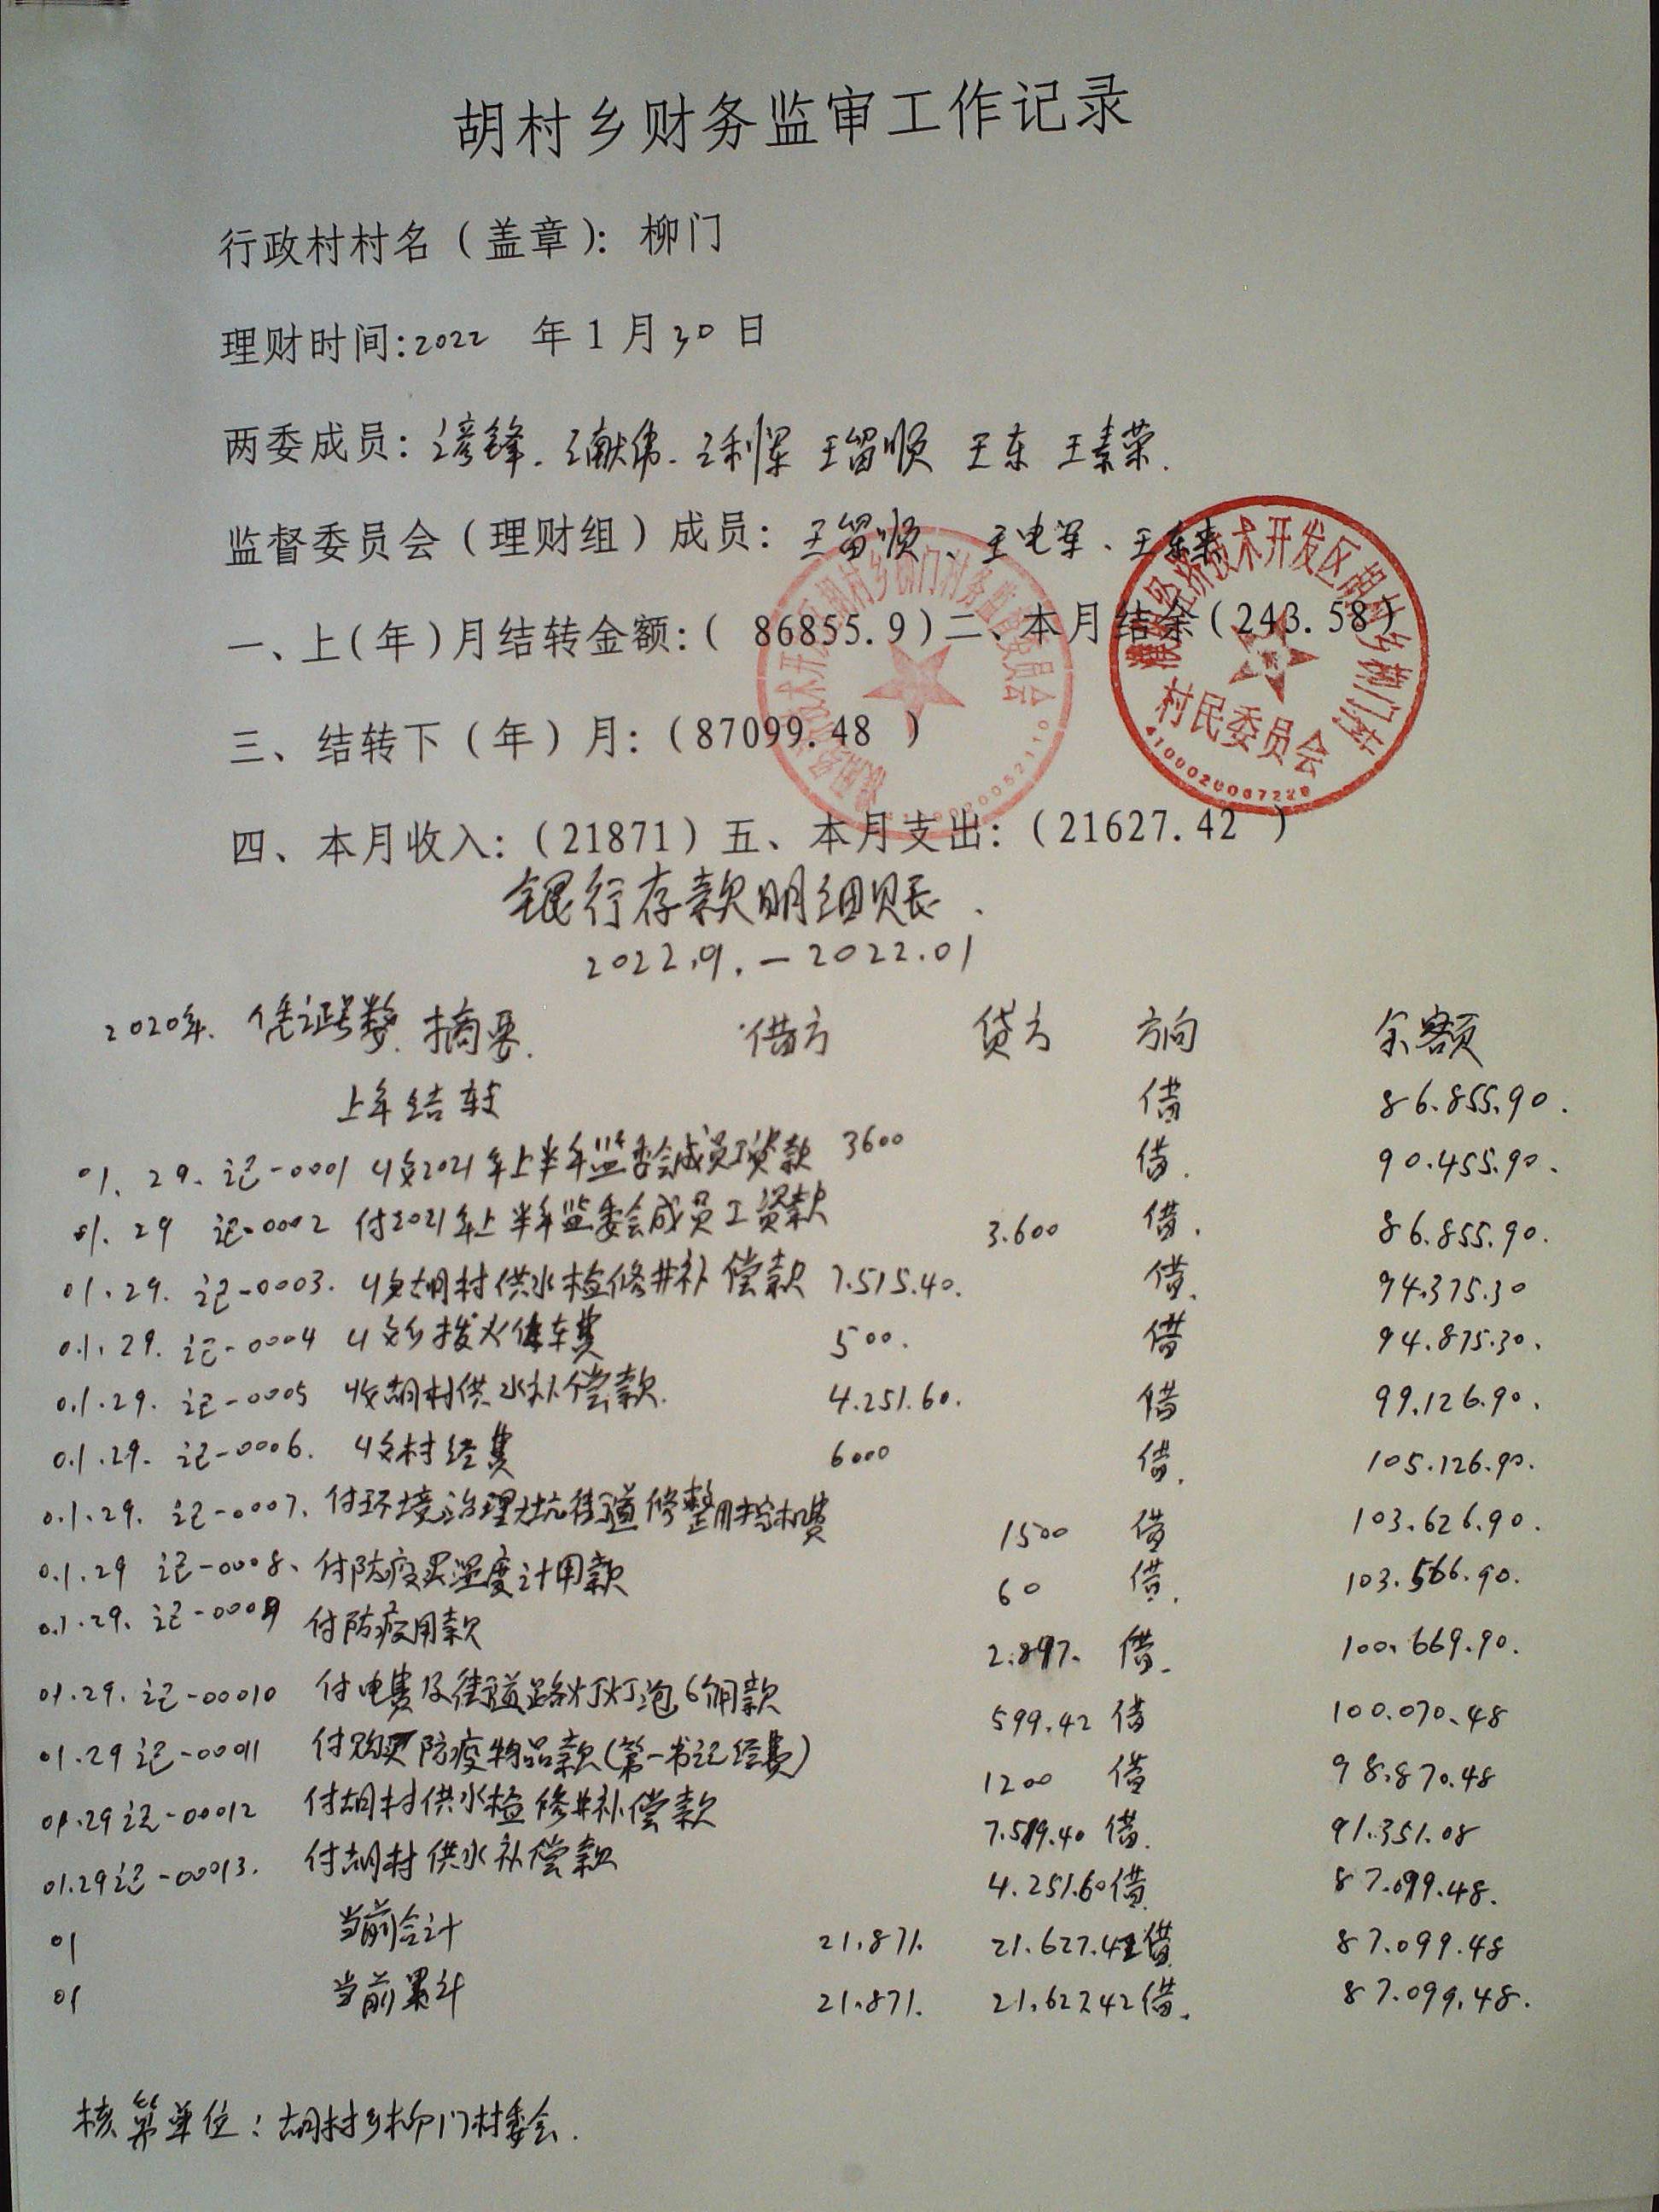 胡村乡财务监审工作记录
行政村村名（盖章）：柳门
理财时间：2022 年 1 月 30 日
两委成员：王彦锋、王献伟、王利军 王留顺 王东 王素荣、
监督委员会（理财组）成员：王留顺、王电军、王东来
一、上（年）月结转金额：（ 86855.9）二、本月结余（243.58）
三、结转下（年）月：（87099.48 ）
四、本月收入：（21871）五、本月支出：（21627.42 ）
经济技术开发区胡村乡柳门村
村民委员会
胡村乡柳门村务监督委员会
银行存款明细账、
2022.01.—2022.01
2020年. 凭证号数. 摘要. 借方 贷方 方向 余额
上年结转 借 86.855.90.
01. 29. 记-0001 收2021年上半年监委会成员工资款 3600 借. 90.455.90.
01. 29 记-0002 付2021年上半年监委会成员工资款 3.600 借. 86.855.90.
01.29. 记-0003. 收胡村供水检修井补偿款 7.515.40. 借. 94.375.30
01.29. 记-0004 收乡拨火体车费 500. 借 94.875.30.
01.29. 记-0005 收胡村供水补偿款. 4.251.60. 借 99.126.90.
01.29. 记-0006. 收村经费 6000 借. 105.126.90.
01.29. 记-0007. 付环境治理大坑街道修整用挖机费 1500 借 103.626.90.
01.29 记-0008、付防疫买温度计用款 60 借. 103.566.90.
01.29. 记-0009 付防疫用款 2.897. 借. 100.669.90.
01.29. 记-00010 付电费及街道路灯灯泡6个用款 599.42 借 100.070.48
01.29 记-00011 付购买防疫物品款（第一书记经费） 1200 借 98.870.48
01.29 记-00012 付胡村供水检修井补偿款 7.519.40 借. 91.351.08
01.29 记-00013. 付胡村供水补偿款 4.251.60 借. 87.099.48.
01 当前合计 21.871. 21.627.42 借 87.099.48
01 当前累计 21.871. 21.627.42 借. 87.099.48.
核算单位：胡村乡柳门村委会.